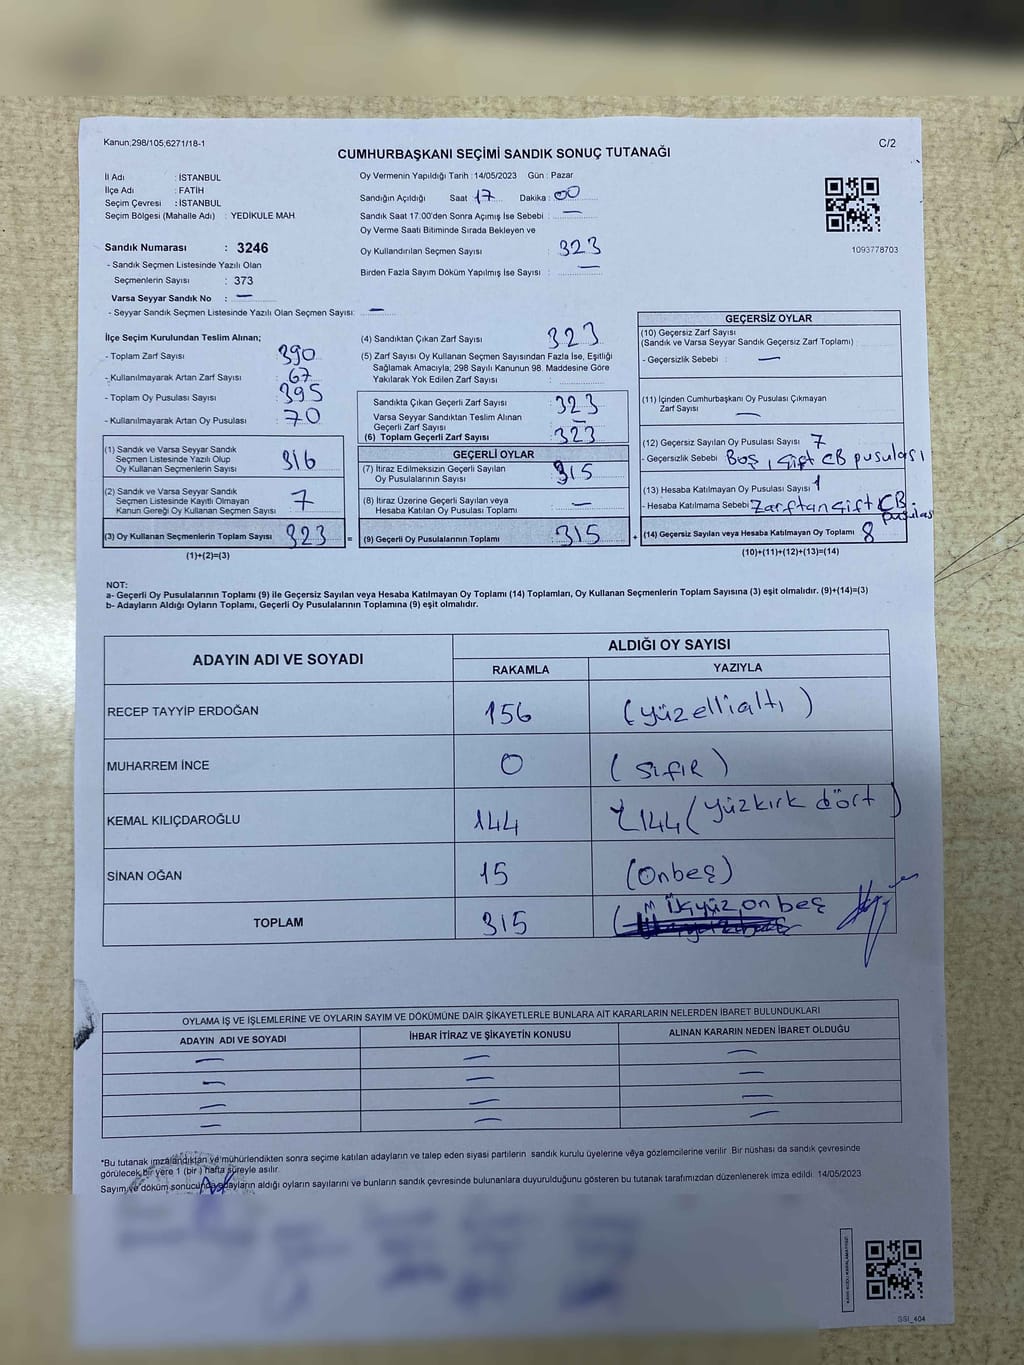 Kanun;298/105;6271/18-1
C/2
CUMHURBAŞKANI SEÇİMİ SANDIK SONUÇ TUTANAĞI
İl Adı : İSTANBUL
İlçe Adı : FATİH
Seçim Çevresi : İSTANBUL
Seçim Bölgesi (Mahalle Adı) : YEDİKULE MAH
Sandık Numarası : 3246
- Sandık Seçmen Listesinde Yazılı Olan
Seçmenlerin Sayısı : 373
Varsa Seyyar Sandık No : —
- Seyyar Sandık Seçmen Listesinde Yazılı Olan Seçmen Sayısı: —
Oy Vermenin Yapıldığı Tarih : 14/05/2023 Gün : Pazar
Sandığın Açıldığı Saat 17 Dakika : 00
Sandık Saat 17:00'den Sonra Açımış İse Sebebi : —
Oy Verme Saati Bitiminde Sırada Bekleyen ve
Oy Kullandırılan Seçmen Sayısı : 323
Birden Fazla Sayım Döküm Yapılmış İse Sayısı : —
1093778703
İlçe Seçim Kurulundan Teslim Alınan;
- Toplam Zarf Sayısı 390
- Kullanılmayarak Artan Zarf Sayısı : 67
- Toplam Oy Pusulası Sayısı : 395
- Kullanılmayarak Artan Oy Pusulası : 70
(1) Sandık ve Varsa Seyyar Sandık
Seçmen Listesinde Yazılı Olup
Oy Kullanan Seçmenlerin Sayısı 316
(2) Sandık ve Varsa Seyyar Sandık
Seçmen Listesinde Kayıtlı Olmayan
Kanun Gereği Oy Kullanan Seçmen Sayısı : 7
(3) Oy Kullanan Seçmenlerin Toplam Sayısı 323 =
(1)+(2)=(3)
(4) Sandıktan Çıkan Zarf Sayısı : 323
(5) Zarf Sayısı Oy Kullanan Seçmen Sayısından Fazla İse, Eşitliği
Sağlamak Amacıyla; 298 Sayılı Kanunun 98. Maddesine Göre
Yakılarak Yok Edilen Zarf Sayısı :
Sandıkta Çıkan Geçerli Zarf Sayısı : 323
Varsa Seyyar Sandıktan Teslim Alınan
Geçerli Zarf Sayısı : —
(6) Toplam Geçerli Zarf Sayısı : 323
GEÇERLİ OYLAR
(7) İtiraz Edilmeksizin Geçerli Sayılan
Oy Pusulalarının Sayısı : 315
(8) İtiraz Üzerine Geçerli Sayılan veya
Hesaba Katılan Oy Pusulası Toplamı : —
(9) Geçerli Oy Pusulalarının Toplamı : 315 +
GEÇERSİZ OYLAR
(10) Geçersiz Zarf Sayısı
(Sandık ve Varsa Seyyar Sandık Geçersiz Zarf Toplamı) :
- Geçersizlik Sebebi : —
(11) İçinden Cumhurbaşkanı Oy Pusulası Çıkmayan
Zarf Sayısı : —
(12) Geçersiz Sayılan Oy Pusulası Sayısı 7
- Geçersizlik Sebebi Boş, Çift CB pusulası
(13) Hesaba Katılmayan Oy Pusulası Sayısı 1
- Hesaba Katılmama Sebebi Zarftan Çift CB
(14) Geçersiz Sayılan veya Hesaba Katılmayan Oy Toplamı 8
(10)+(11)+(12)+(13)=(14)
NOT:
a- Geçerli Oy Pusulalarının Toplamı (9) ile Geçersiz Sayılan veya Hesaba Katılmayan Oy Toplamı (14) Toplamları, Oy Kullanan Seçmenlerin Toplam Sayısına (3) eşit olmalıdır. (9)+(14)=(3)
b- Adayların Aldığı Oyların Toplamı, Geçerli Oy Pusulalarının Toplamına (9) eşit olmalıdır.
ADAYIN ADI VE SOYADI ALDIĞI OY SAYISI
RAKAMLA YAZIYLA
RECEP TAYYİP ERDOĞAN 156 (yüzellialtı)
MUHARREM İNCE 0 (sıfır)
KEMAL KILIÇDAROĞLU 144 144 (yüzkırk dört)
SİNAN OĞAN 15 (Onbeş)
TOPLAM 315 onbeş
OYLAMA İŞ VE İŞLEMLERİNE VE OYLARIN SAYIM VE DÖKÜMÜNE DAİR ŞİKAYETLERLE BUNLARA AİT KARARLARIN NELERDEN İBARET BULUNDUKLARI
ADAYIN ADI VE SOYADI İHBAR İTİRAZ VE ŞİKAYETİN KONUSU ALINAN KARARIN NEDEN İBARET OLDUĞU
— — —
— — —
— — —
— — —
*Bu tutanak imzalandıktan ve mühürlendikten sonra seçime katılan adayların ve talep eden siyasi partilerin sandık kurulu üyelerine veya gözlemcilerine verilir. Bir nüshası da sandık çevresinde
görülecek bir yere 1 (bir ) hafta süreyle asılır.
Sayım ve döküm sonucunda adayların aldığı oyların sayılarını ve bunların sandık çevresinde bulunanlara duyurulduğunu gösteren bu tutanak tarafımızdan düzenlenerek imza edildi. 14/05/2023
SSI_404